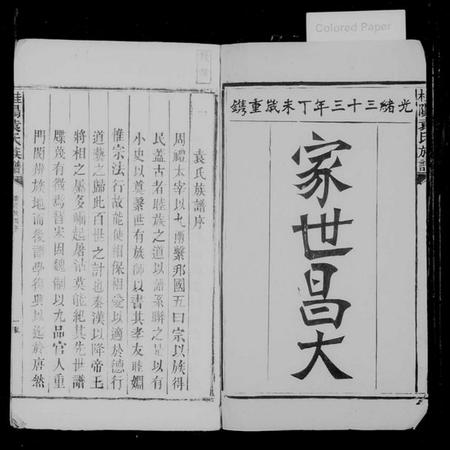 Colored Paper
光緒三十三年丁未歲重鐫
家世昌大
桂陽袁氏族譜
袁氏族譜序
周禮太宰以九兩繫邦國五曰宗以族得
民蓋古者睦族之道以譜系聯之是以有
小史以奠繫世有族師以書其孝友睦婣
惟宗法行故能使相保相愛以適於德行
道藝之歸此百世之計也秦漢以降帝王
將相之屬多崛起屠沽莫能紀其先世譜
牒蔑有徵焉晉宋因魏制以九品官人重
門閥辨族地而後譜學復興以迄於唐然
桂陽袁氏族譜